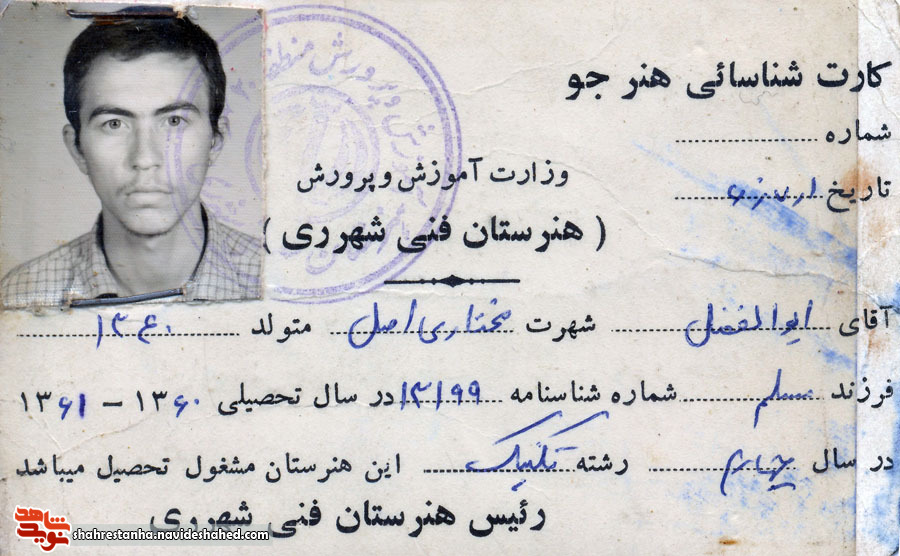 کارت شناسائی هنرجو
شماره
تاریخ
وزارت آموزش و پرورش
( هنرستان فنی شهرری )
آقای ابوالفضل شهرت مختاری اصل متولد ۱۳۴۰
فرزند مسلم شماره شناسنامه ۱۳۱۹۹ در سال تحصیلی ۱۳۶۰ – ۱۳۶۱
در سال چهارم رشته تکنیک این هنرستان مشغول تحصیل میباشد
رئیس هنرستان فنی شهرری
نوید شاهد
shahrestanha.navideshahed.com